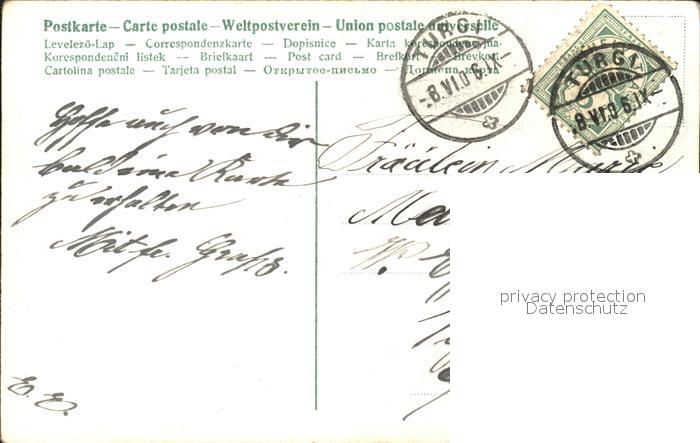 Postkarte — Carte postale — Weltpostverein — Union postale universelle
Levelező-Lap — Correspondenzkarte — Dopisnice — Karta korespondencyjna
Korespondenční listek — Briefkaart — Post card — Brefkort — Brevkort
Cartolina postale — Tarjeta postal — Открытое-письмо — Дописна карта
TURGI
8.VI.06.IX
TURGI
8.VI.06.IX
Hoffe auch von Dir
bald eine Karte
zu erhalten
Mit fr. Gruss.
E. E.
Fräulein
privacy protection
Datenschutz